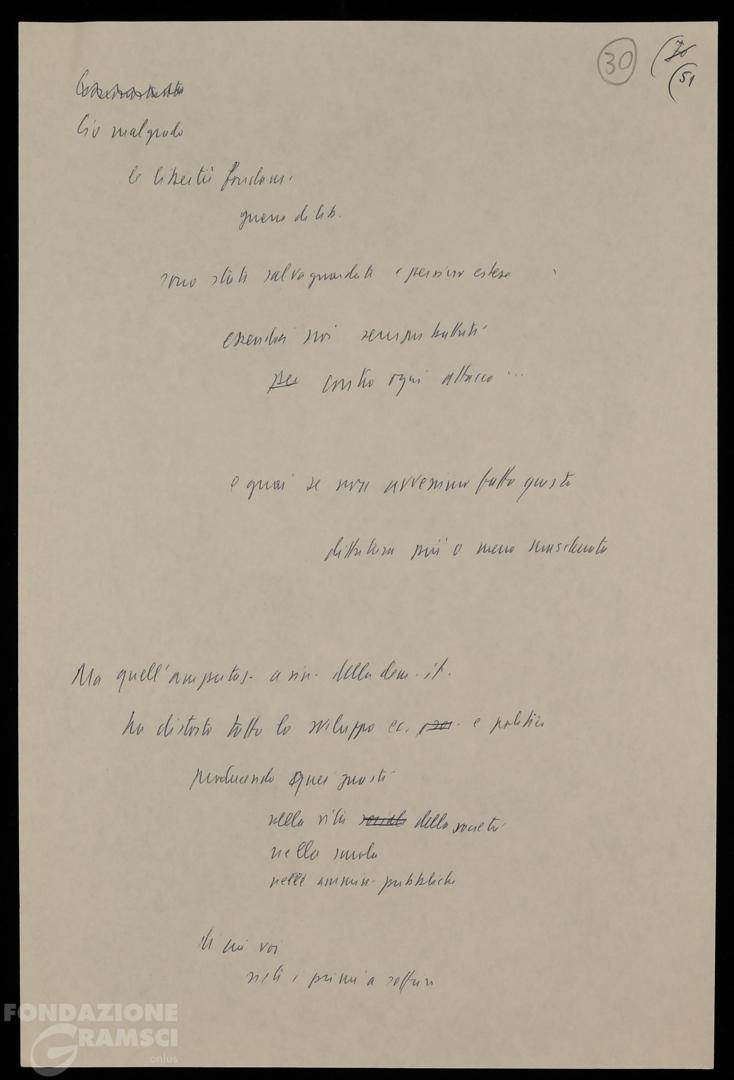 30 (70
(51
Ciò malgrado
le libertà fondam.
guerra di lib.
sono state salvaguardate e persino estese
essendoci noi sempre battuti
per contro ogni attacco ...
e guai se non avessimo fatto questo
dittatura più o meno mascherata
Ma quell'amputaz. a sin. della dem. it.
ha distorto tutto lo sviluppo ec. e politico
producendo quei guasti
nella vita sociale della società
nella scuola
nelle ammin. pubbliche
di cui voi
siete i primi a soffrire
FONDAZIONE
GRAMSCI
onlus